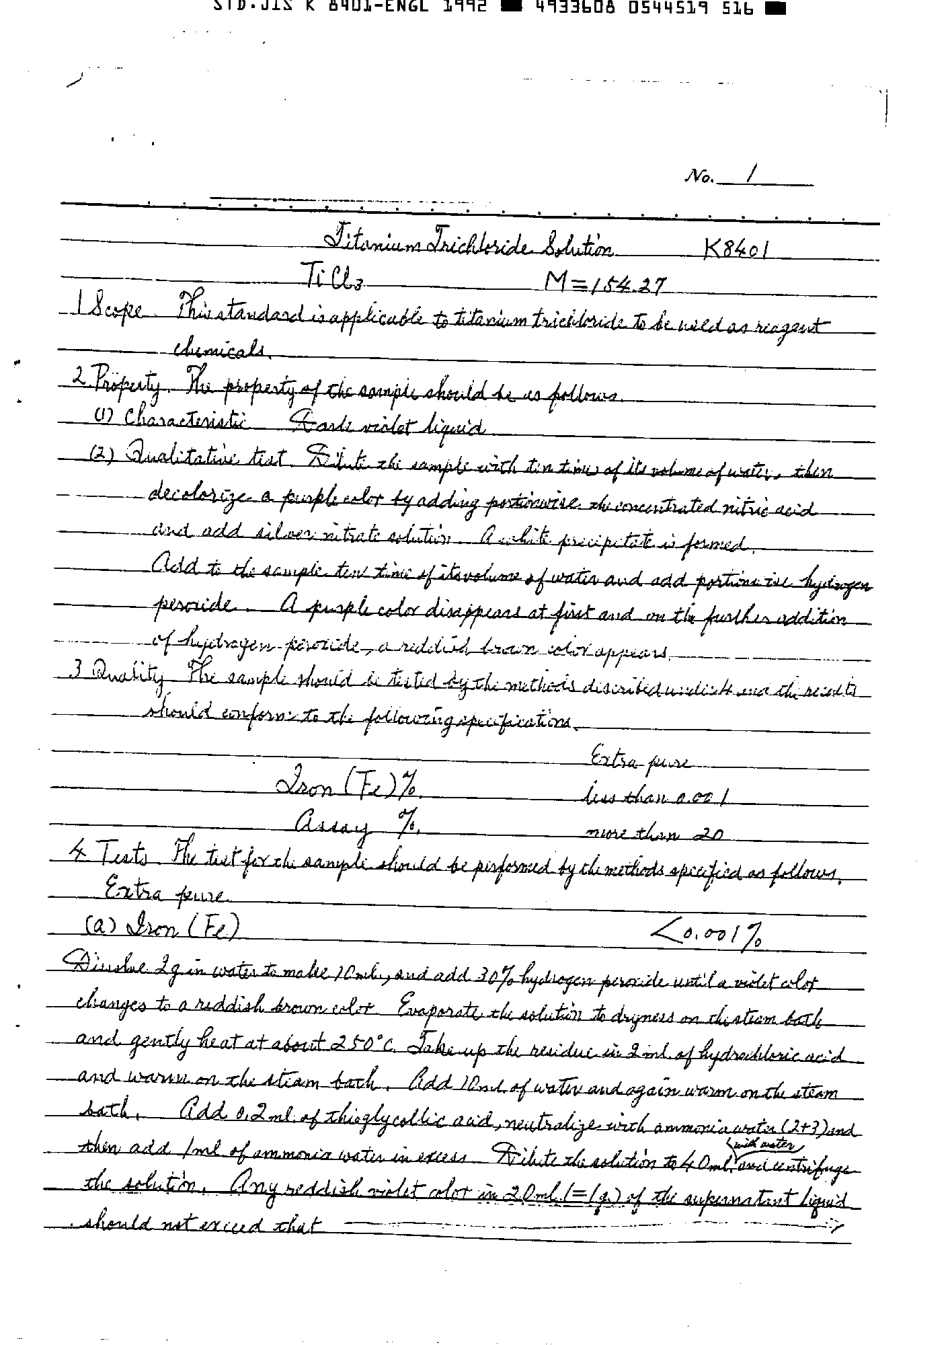 STD.JIS K 8401-ENGL 1992 ■ 4933608 0544519 516 ■
No. 1
Titanium Trichloride Solution K8401
TiCl3 M=154.27
1 Scope. This standard is applicable to titanium trichloride to be used as reagent
chemicals.
2 Property. The property of the sample should be as follows.
(1) Characteristic Dark violet liquid
(2) Qualitative test. Dilute the sample with ten times of its volume of water, then
decolorize a purple color by adding portionwise the concentrated nitric acid
and add silver nitrate solution. A white precipitate is formed.
Add to the sample ten time of its volume of water and add portionwise hydrogen
peroxide. A purple color disappears at first and on the further addition
of hydrogen peroxide, a reddish brown color appears.
3 Quality The sample should be tested by the methods described under 4 and the results
should conform to the following specifications.
Extra pure
Iron (Fe) % less than 0.001
Assay %. more than 20
4 Tests The test for the sample should be performed by the methods specified as follows.
Extra pure.
(a) Iron (Fe) <0.001%
Dissolve 2g in water to make 10ml, and add 30% hydrogen peroxide until a violet color
changes to a reddish brown color. Evaporate the solution to dryness on the steam bath
and gently heat at about 250°C. Take up the residue in 2ml of hydrochloric acid
and warm on the steam bath. Add 10ml of water and again warm on the steam
bath. Add 0.2ml of thioglycollic acid, neutralize with ammonia water (2+3) and
then add 1ml of ammonia water in excess. Dilute the solution to 40ml with water and centrifuge
the solution. Any reddish violet color in 20ml (=1g) of the supernatant liquid
should not exceed that